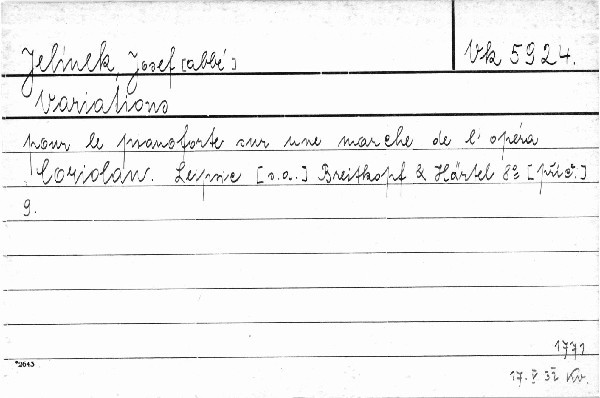 Jelínek, Josef [abbé] Vk 5924.
Variations
pour le pianoforte sur une marche de l'opéra
Coriolans. Lepsic [s.a.] Breitkopf & Härtel 8° [příč.]
9.
1771
*2643
17. V 32 Kv.